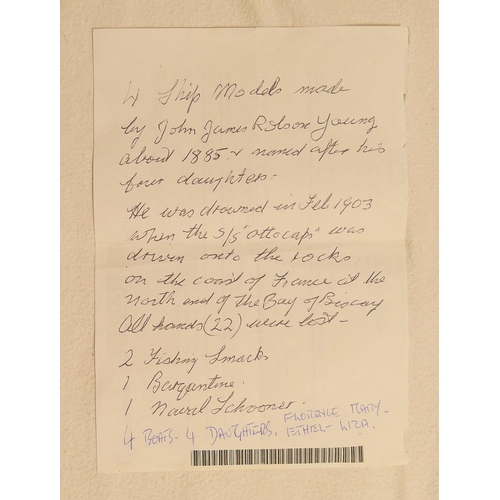 4 Ship Models made
by John James Robson Young
about 1885 & named after his
four daughters -
He was drowned in Feb 1903
when the S/S "Ottocaps" was
driven onto the rocks
on the coast of France at the
North end of the Bay of Biscay
All hands (22) were lost -
2 Fishing Smacks
1 Barqantine.
1 Naval Schooner.
4 BOATS - 4 DAUGHTERS. FLORENCE. MARY -
ETHEL - LIZA.